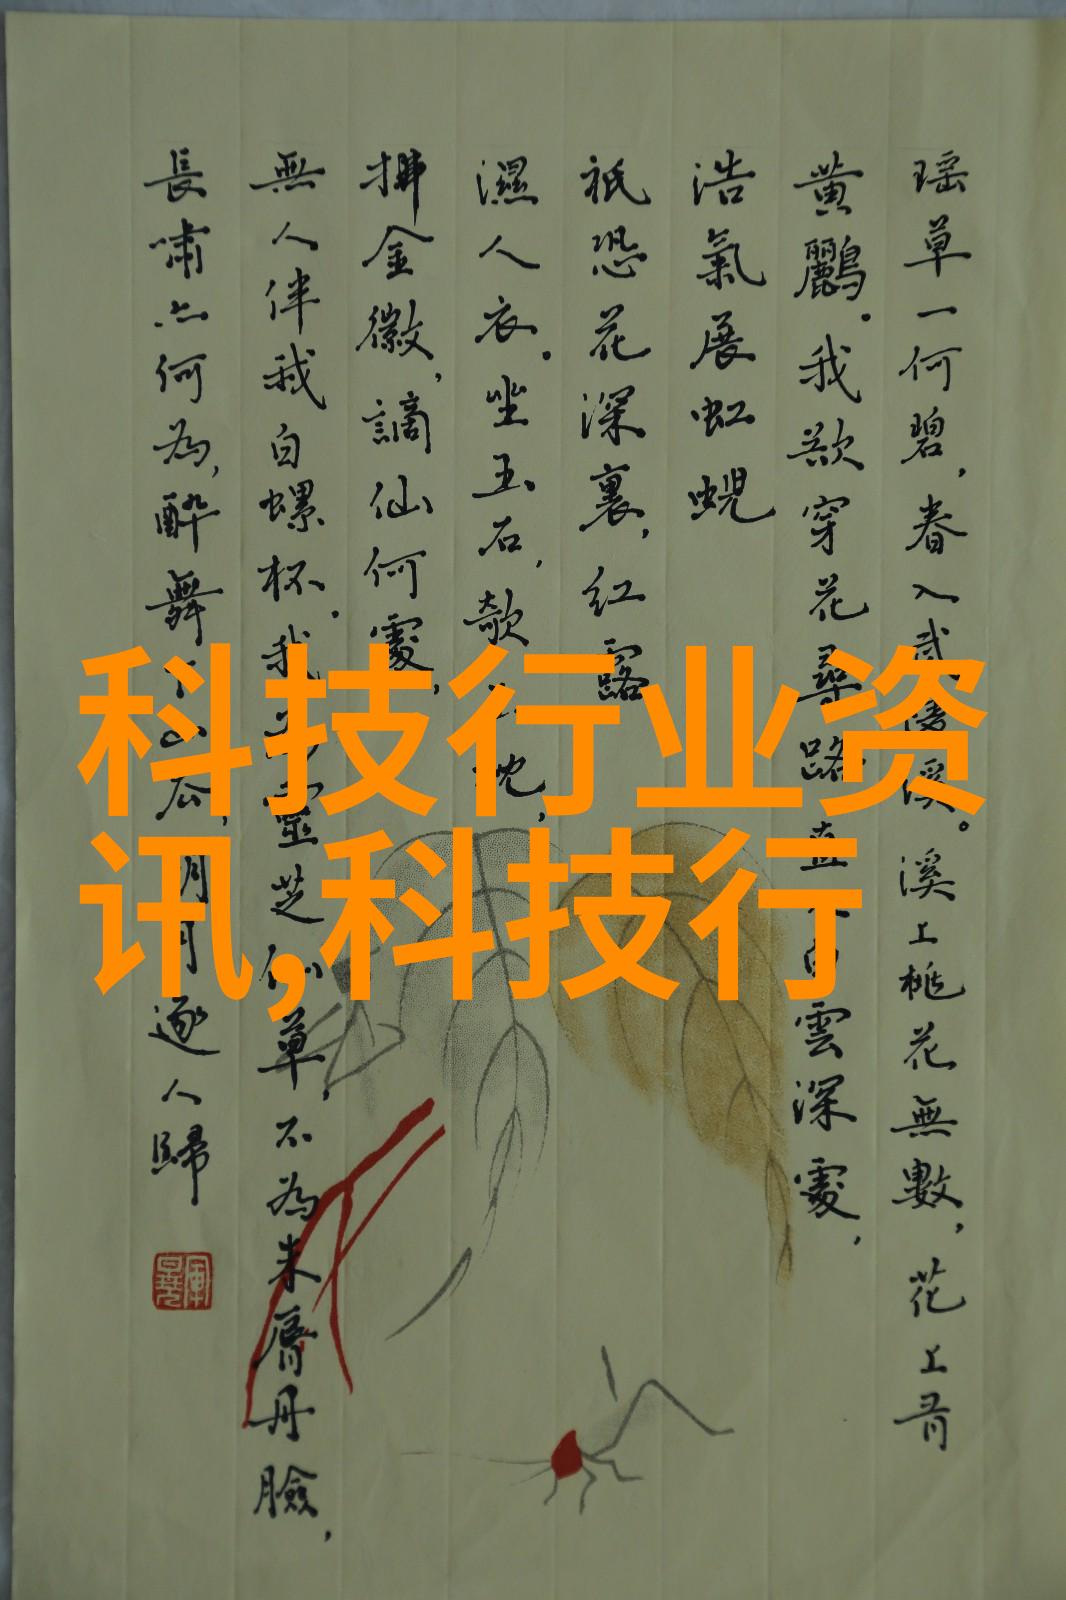 瑶草一何碧,春入武陵溪。溪上桃花無數,花上有
黄鸝。我欲穿花尋路直入白雲深處,
浩氣展虹蜺
祇恐花深裏,紅露
濕人衣。坐玉石,欹玉枕,
拂金徽,謫仙何處,
無人伴我白螺杯。我為靈芝仙草,不為朱脣丹臉,
長嘯亦何為,醉舞下山去,明月逐人歸
科技行业资
讯,科技行